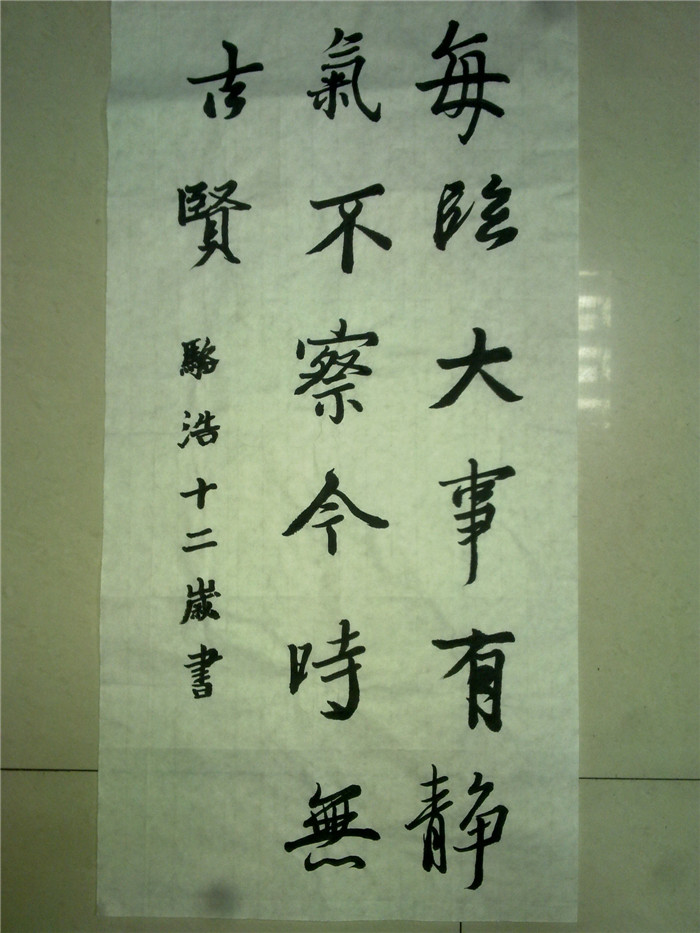 每臨大事有静
氣不察今時無
古賢
駱浩十二歲書